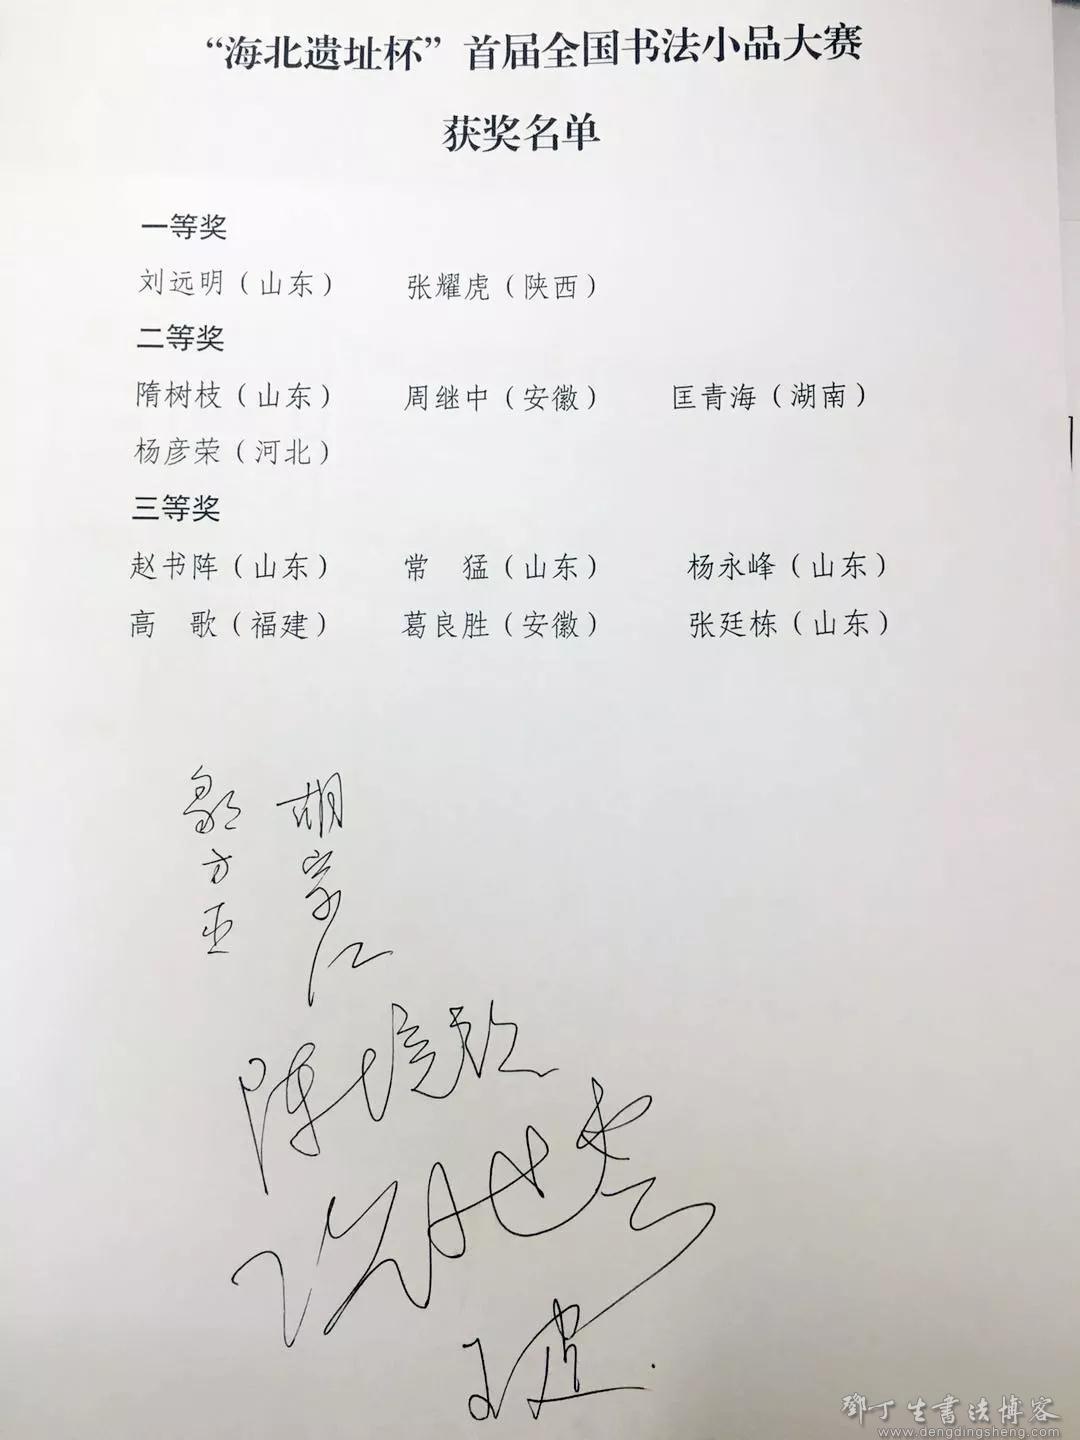 “海北遗址杯”首届全国书法小品大赛
获奖名单
一等奖
刘远明（山东） 张耀虎（陕西）
二等奖
隋树枝（山东） 周继中（安徽） 匡青海（湖南）
杨彦荣（河北）
三等奖
赵书阵（山东） 常　猛（山东） 杨永峰（山东）
高　歌（福建） 葛良胜（安徽） 张廷栋（山东）
胡
陈
鄧丁生書法博客
www.dengdingsheng.com